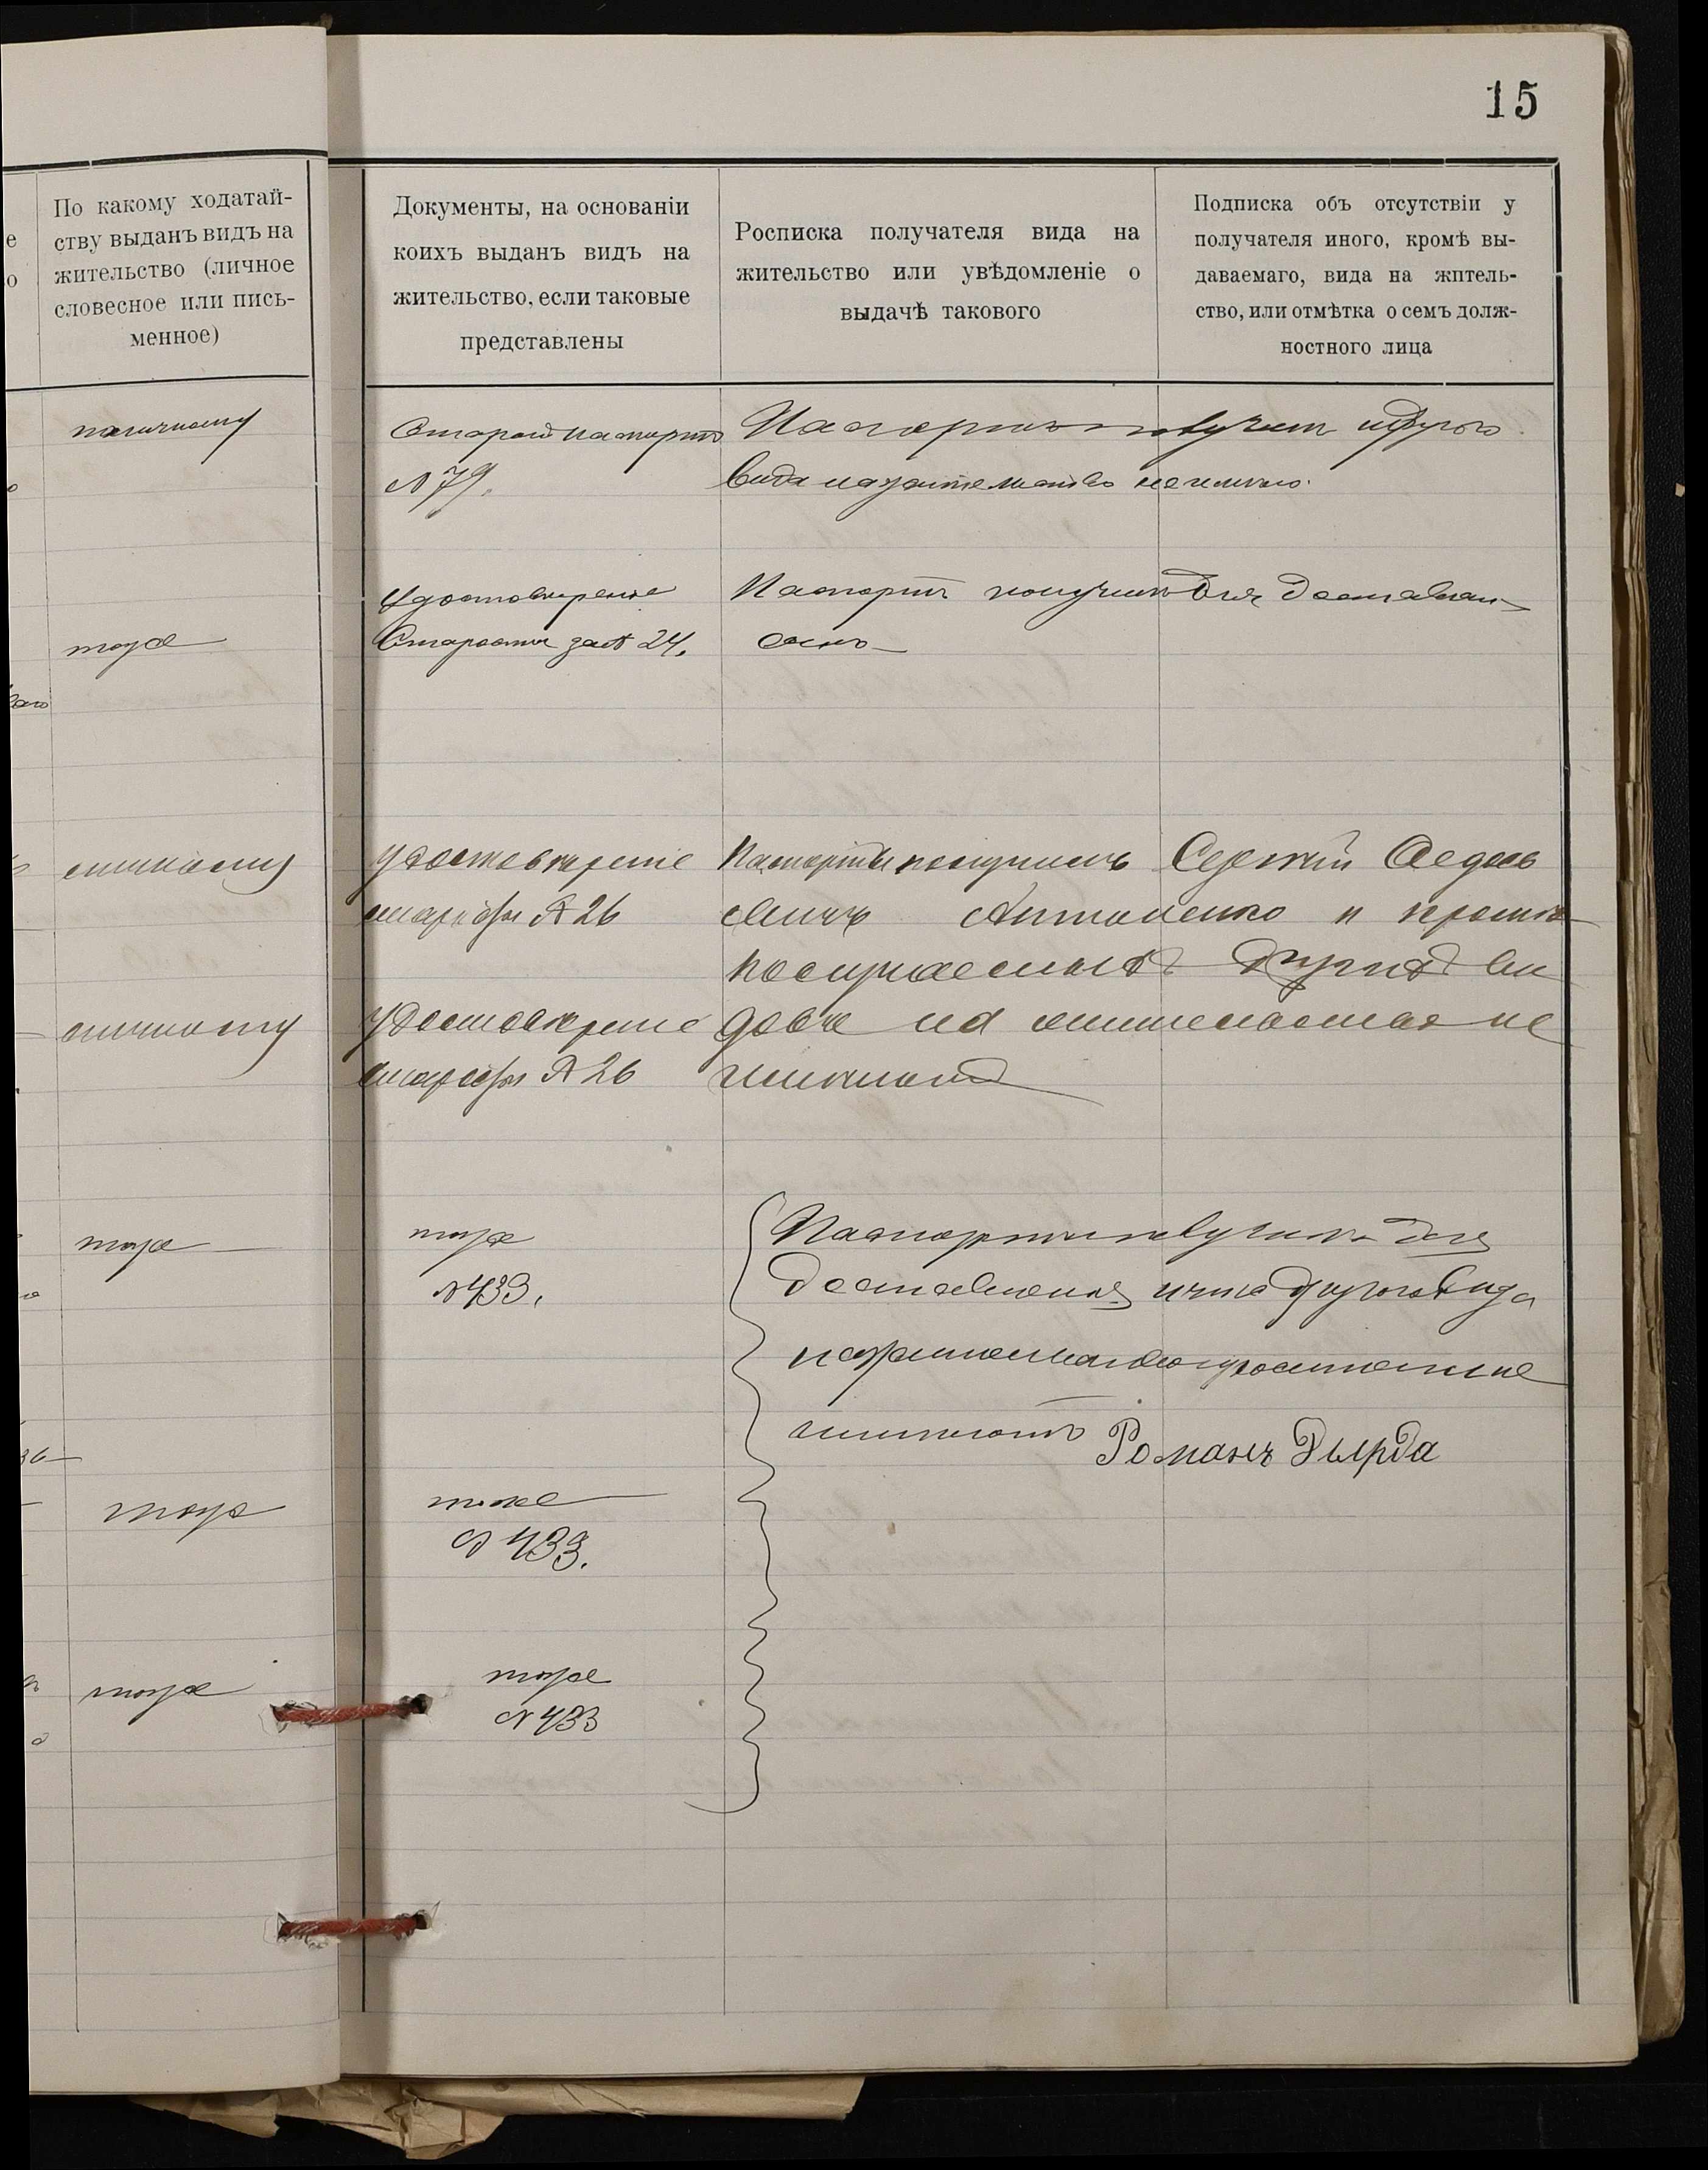 15
По какому ходатай-
ству выданъ видъ на
жительство (личное
словесное или пись-
менное)
Документы, на основаніи
коихъ выданъ видъ на
жительство, если таковые
представлены
Росписка получателя вида на
жительство или увѣдомленіе о
выдачѣ такового
Подписка объ отсутствіи у
получателя иного, кромѣ вы-
даваемаго, вида на жптель-
ство, или отмѣтка о семъ долж-
ностного лица
е
о
поличному
Старой паспортъ
№ 79.
Паспортъ получилъ и другого
вида на жительство не имѣю.
тоже
Удостовѣреніе
Старосты за № 24.
Паспортъ получилъ для доставлен
личному
Удостовѣреніе
старосты № 26
Паспорты получилъ Сергѣй
Антоненко и кромѣ
полученныхъ другихъ ви
довъ на жительство не
личному
Удостовѣреніе
старосты № 26
тоже
тоже
№ 433.
Паспорты получилъ для
доставленія и что другого вида
на жительство просители не
имѣютъ Романъ Дырда
тоже
тоже
№ 433.
тоже
тоже
№ 433